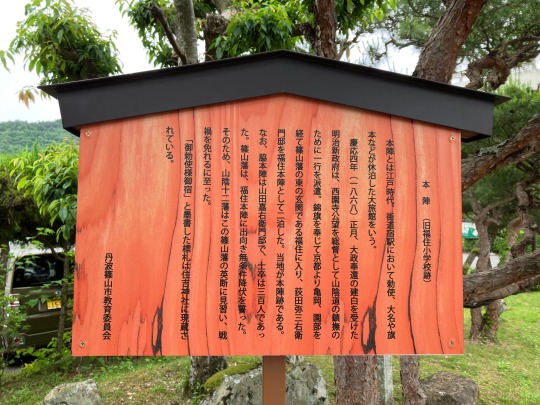 本陣（旧福住小学校跡）
本陣とは江戸時代、街道宿駅において勅使、大名や旗
本などが休泊した大旅館をいう。
慶応四年（一八六八）正月、大政奉還の建白を受けた
明治新政府は、西園寺公望を総督として山陰道の鎮撫の
ために一行を派遣、錦旗を奉じて京都より亀岡、園部を
経て篠山藩の東の玄関である福住に入り、荻田弥三右衛
門邸を福住本陣として二泊した。当地が本陣跡である。
なお、脇本陣は山田嘉右衛門邸で、士卒は三百人であっ
た。篠山藩は、福住本陣に出向き無条件降伏を誓った。
そのため、山陰十二藩はこの篠山藩の英断に見習い、戦
禍を免れるに至った。
「御勅使様御宿」と墨書した標札は住吉神社に現蔵さ
れている。
丹波篠山市教育委員会